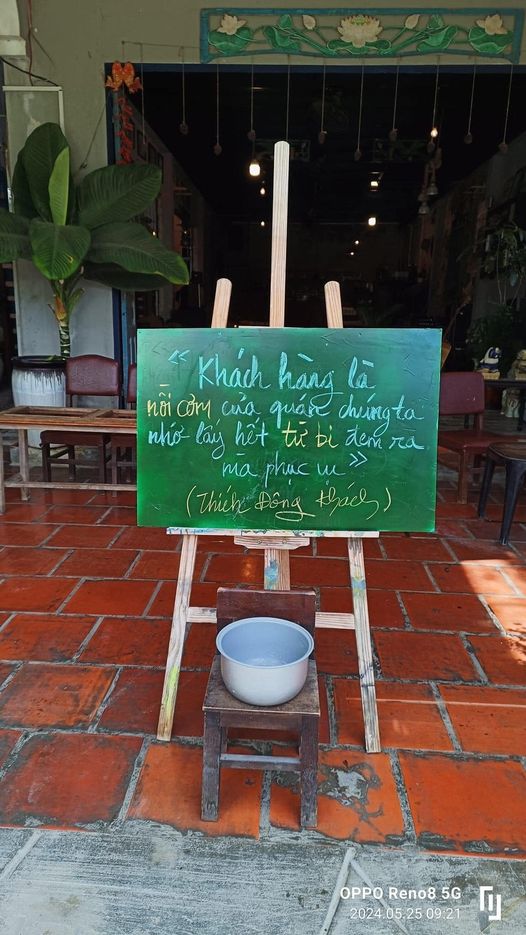 “ Khách hàng là
nồi cơm của quán chúng ta
nhớ lấy hết từ bi đem ra
mà phục vụ ”
(Thích Đông Khách)
OPPO Reno8 5G
2024.05.25 09:21